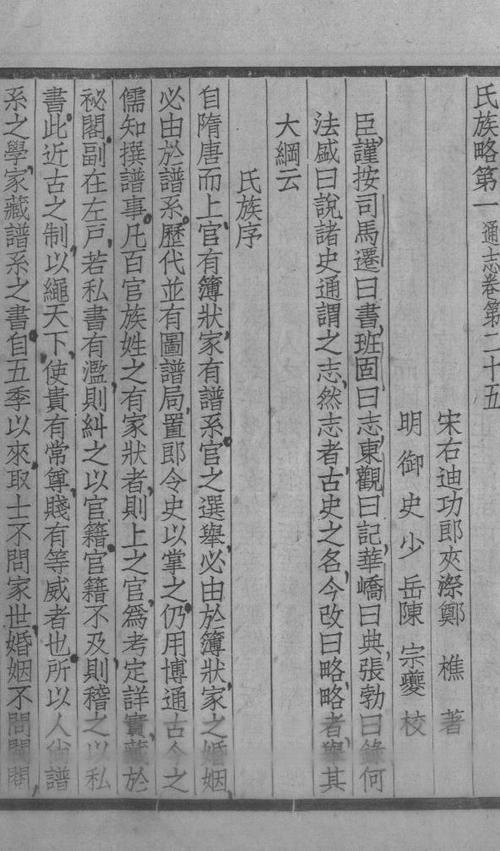 氏族略第一 通志卷第二十五
宋右迪功郎夾漈鄭樵著
明御史少岳陳宗夔校
臣謹按司馬遷曰書班固曰志東觀曰記華嶠曰典張勃曰錄何
法盛曰說諸史通謂之志然志者古史之名今改曰略略者舉其
大綱云
氏族序
自隋唐而上官有簿狀家有譜系官之選舉必由於簿狀家之婚姻
必由於譜系歷代並有圖譜局置郎令史以掌之仍用博通古今之
儒知撰譜事凡百官族姓之有家狀者則上之官爲考定詳實藏於
祕閣副在左戶若私書有濫則糾之以官籍官籍不及則稽之以私
書此近古之制以繩天下使貴有常尊賤有等威者也所以人尚譜
系之學家藏譜系之書自五季以來取士不問家世婚姻不問閥閱